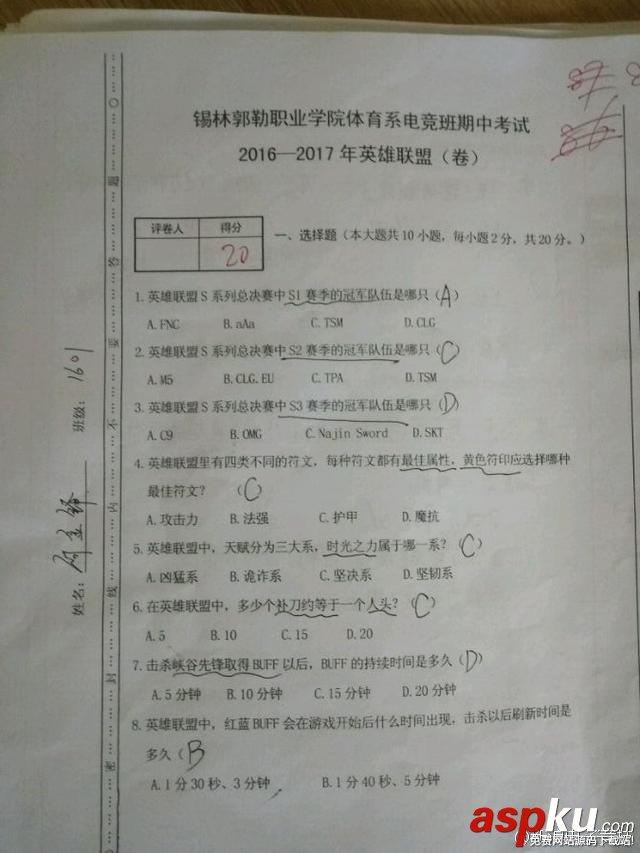 锡林郭勒职业学院体育系电竞班期中考试
2016—2017年英雄联盟（卷）
评卷人 得分
20
一、选择题（本大题共10小题，每小题2分，共20分。）
1.英雄联盟S系列总决赛中S1赛季的冠军队伍是哪只（A）
A.FNC B.aAa C.TSM D.CLG
2.英雄联盟S系列总决赛中S2赛季的冠军队伍是哪只（C）
A.M5 B.CLG.EU C.TPA D.TSM
3.英雄联盟S系列总决赛中S3赛季的冠军队伍是哪只（D）
A.C9 B.OMG C.Najin Sword D.SKT
4.英雄联盟里有四类不同的符文，每种符文都有最佳属性，黄色符印应选择哪种
最佳符文？ （C）
A.攻击力 B.法强 C.护甲 D.魔抗
5.英雄联盟中，天赋分为三大系，时光之力属于哪一系？（C）
A.凶猛系 B.诡诈系 C.坚决系 D.坚韧系
6.在英雄联盟中，多少个补刀约等于一个人头？（C）
A.5 B.10 C.15 D.20
7.击杀峡谷先锋取得BUFF以后，BUFF的持续时间是多久（D）
A.5分钟 B.10分钟 C.15分钟 D.20分钟
8.英雄联盟中，红蓝BUFF会在游戏开始后什么时间出现，击杀以后刷新时间是
多久（B
A.1分30秒、3分钟 B.1分40秒、5分钟
班级：1601
姓名：
密 封 线 内 不 要 答 题
aspku.com
免费网站源码下载站!